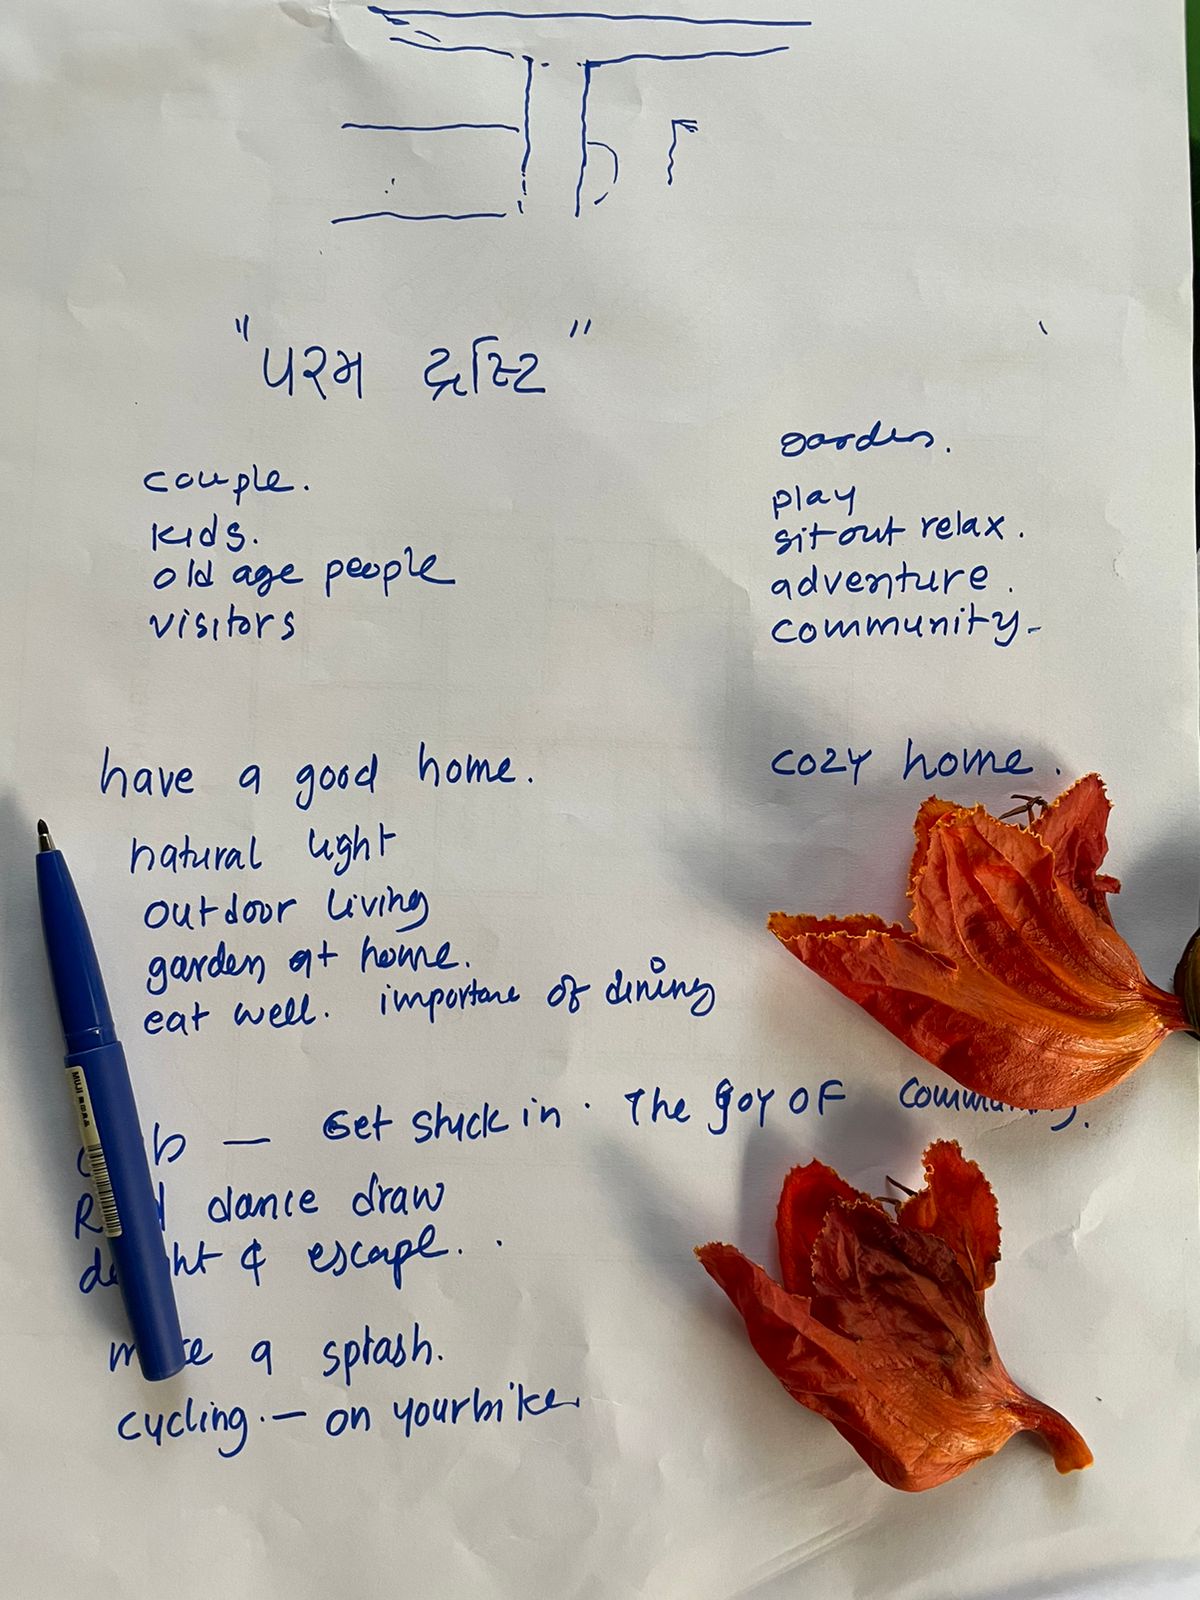 "પરમ દ્રષ્ટિ"
couple.
kids.
old age people
visitors
garden.
play
sitout relax.
adventure.
community-
have a good home.
cozy home.
natural light
outdoor living
garden at home.
eat well. importane of dining
— Get stuck in. The joy of
dance draw
& escape..
a splash.
cycling.— on your bike
MUJI